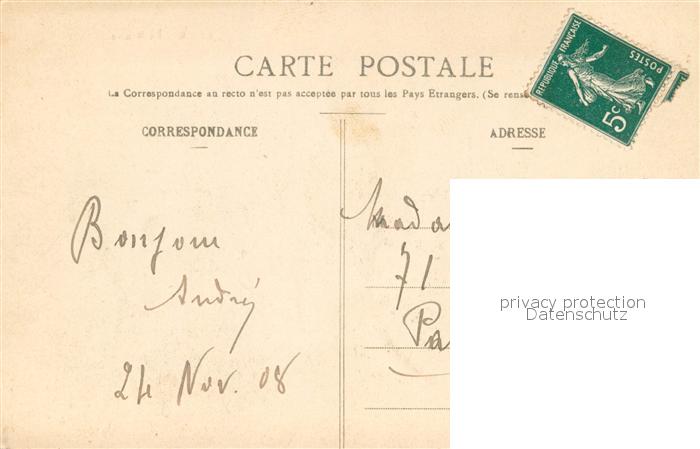 CARTE POSTALE
La Correspondance au recto n'est pas acceptée par tous les Pays Etrangers. (Se rense
CORRESPONDANCE
ADRESSE
RÉPUBLIQUE FRANÇAISE
POSTES
5c
Bonjour
André
24 Nov. 08
Mada
71
Pa
privacy protection
Datenschutz